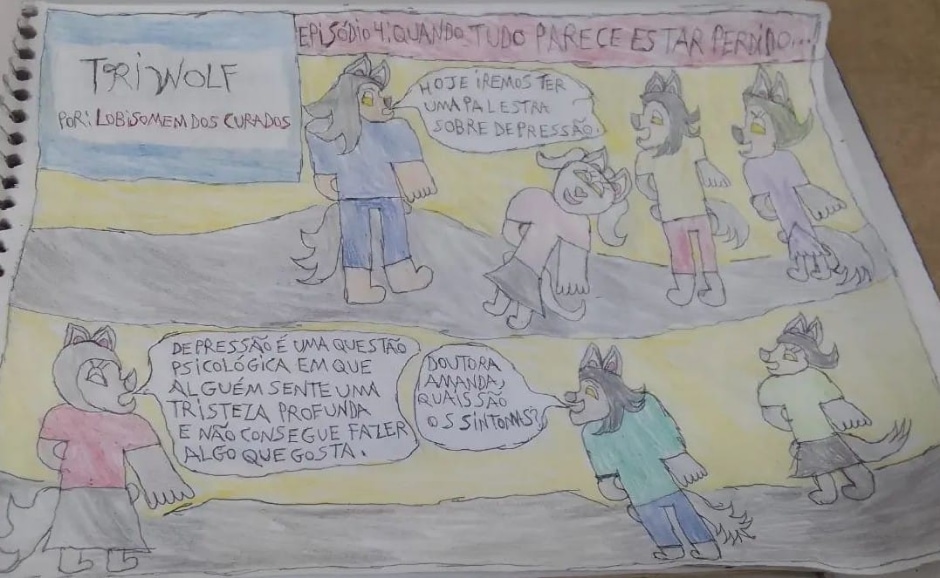 TRIWOLF
POR: LOBISOMEM DOS CURADOS
EPISÓDIO 4: QUANDO TUDO PARECE ESTAR PERDIDO...!
HOJE IREMOS TER
UMA PALESTRA
SOBRE DEPRESSÃO.
DEPRESSÃO É UMA QUESTÃO
PSICOLÓGICA EM QUE
ALGUÉM SENTE UMA
TRISTEZA PROFUNDA
E NÃO CONSEGUE FAZER
ALGO QUE GOSTA.
DOUTORA
AMANDA,
QUAIS SÃO
OS SINTOMAS?